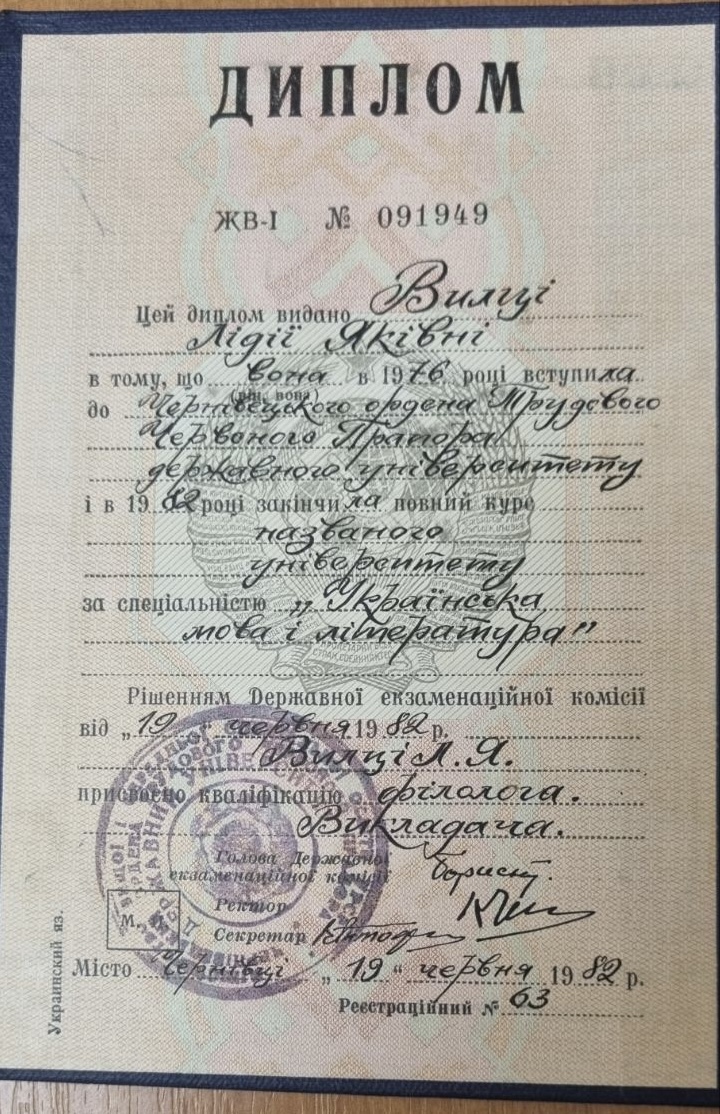 ДИПЛОМ
ЖВ-І № 091949
Цей диплом видано Вилці
Лідії Яківні
в тому, що вона в 1976 році вступила
(він, вона)
до Чернівецького ордена Трудового
Червоного Прапора
державного університету
і в 1982 році закінчила повний курс
названого
університету
за спеціальністю „Українська
мова і література"
Рішенням Державної екзаменаційної комісії
від „19" червня 1982 р.
Вилці Л. Я.
присвоєно кваліфікацію філолога.
Викладача.
Голова Державної
екзаменаційної комісії
Ректор
М. П.
Секретар
Місто Чернівці „19" червня 1982 р.
Реєстраційний № 63
Украинский яз.